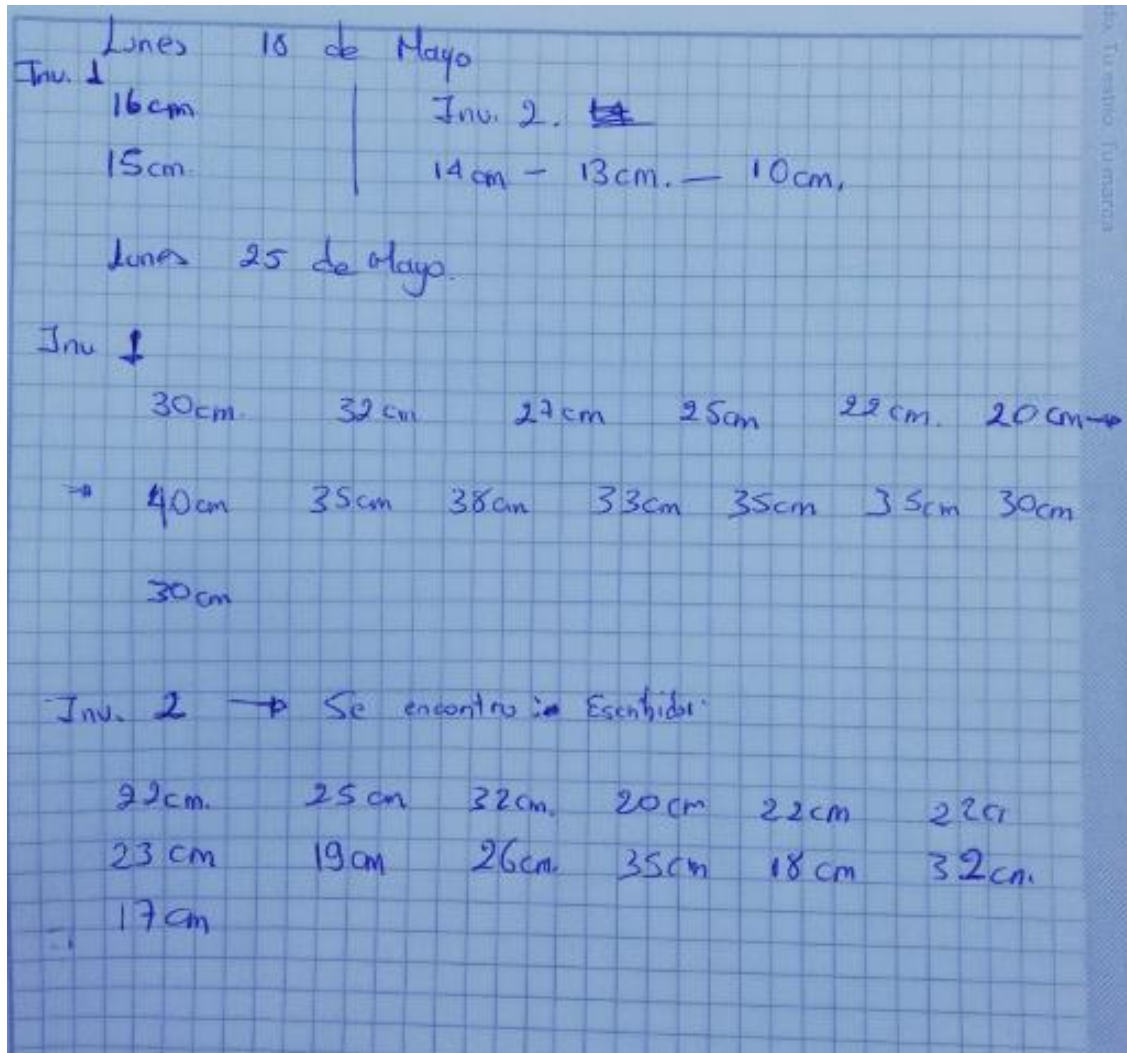 Lunes 18 de Mayo
Inv. 1
16cm
15cm
Inv. 2.
14cm - 13cm. - 10cm.
Lunes 25 de Mayo.
Inv 1
30cm. 32cm 27cm 25cm 22cm. 20cm→
→ 40cm 35cm 38cm 33cm 35cm 35cm 30cm
30cm
Inv. 2 → Se encontro
22cm. 25cm 32cm. 20cm 22cm 22c
23cm 19cm 26cm. 35cm 18cm 32cm.
17cm
Tu estilo. Tu marca